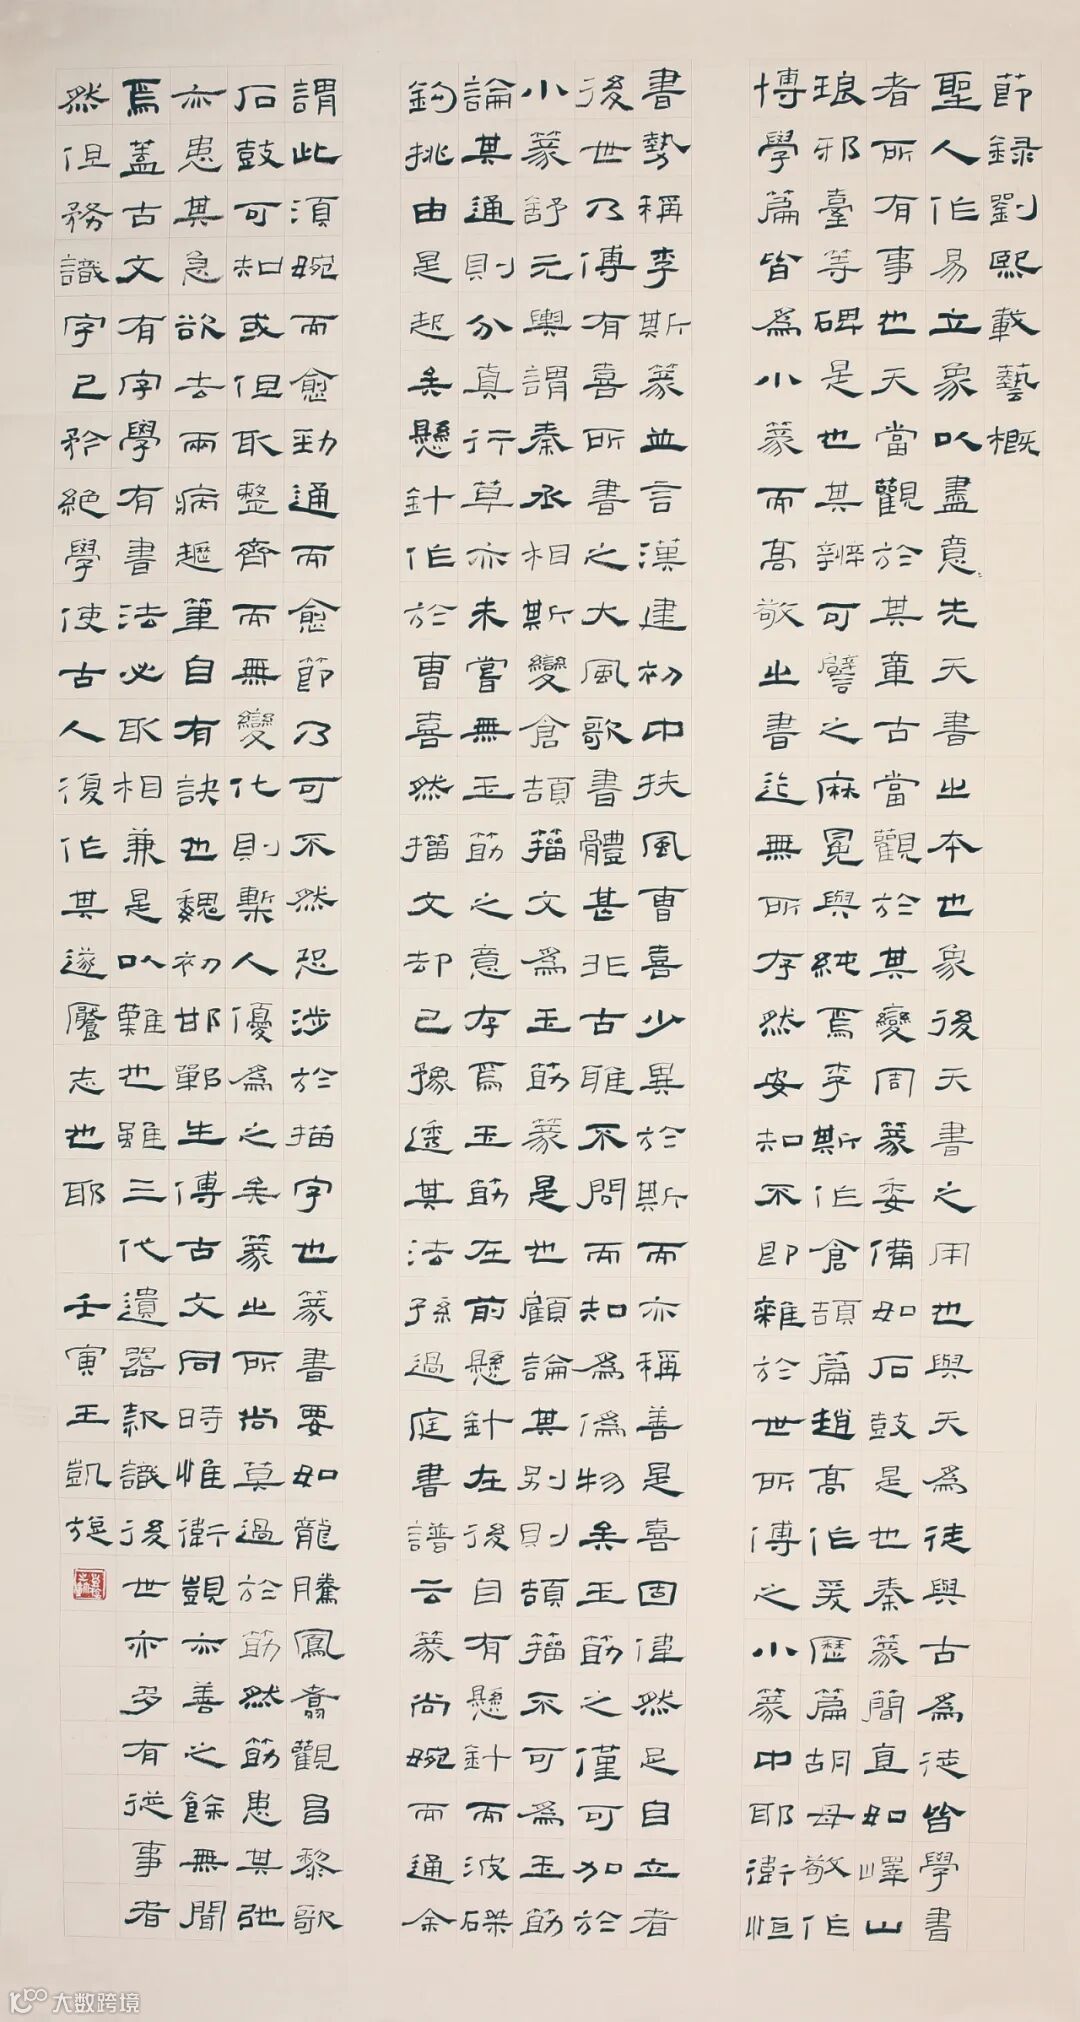 節録劉熙載藝概
聖人作易立象以盡意意先天書之本也象後天書之用也與天爲徒與古爲徒皆學書
者所有事也天當觀於其章古當觀於其變周篆委備如石鼓是也秦篆簡直如嶧山
琅邪臺等碑是也其辨可譬之麻冕與純焉李斯作倉頡篇趙高作爰歷篇胡母敬作
博學篇皆爲小篆而高敬之書迄無所存然安知不即雜於世所傳之小篆中耶衛恒
書勢稱李斯篆並言漢建初中扶風曹喜少異於斯而亦稱善是喜固偉然足自立者
後世乃傳有喜所書之大風歌書體甚非古雅不問而知爲偽物矣玉筋之僅可加於
小篆舒元輿謂秦丞相斯變倉頡籀文爲玉筋篆是也顧論其別則頡籀不可爲玉筋
論其通則分真行草亦未嘗無玉筋之意存焉玉筋在前懸針在後自有懸針而波磔
鈎挑由是起矣懸針作於曹喜然籀文却已豫透其法孫過庭書譜云篆尚婉而通余
謂此須婉而愈勁通而愈節乃可不然恐涉於描字也篆書要如龍騰鳳翥觀昌黎歌
石鼓可知或但取整齊而無變化則槧人優爲之矣篆之所尚莫過於筋然筋患其弛
亦患其急欲去兩病趲筆自有訣也魏初邯鄲生傳古文同時惟衛覬亦善之餘無聞
焉蓋古文有字學有書法必取相兼是以難也雖三代遺器款識後世亦多有從事者
然但務識字已矜絕學使古人復作其遂饜志也耶 壬寅王凱旋
大数跨境